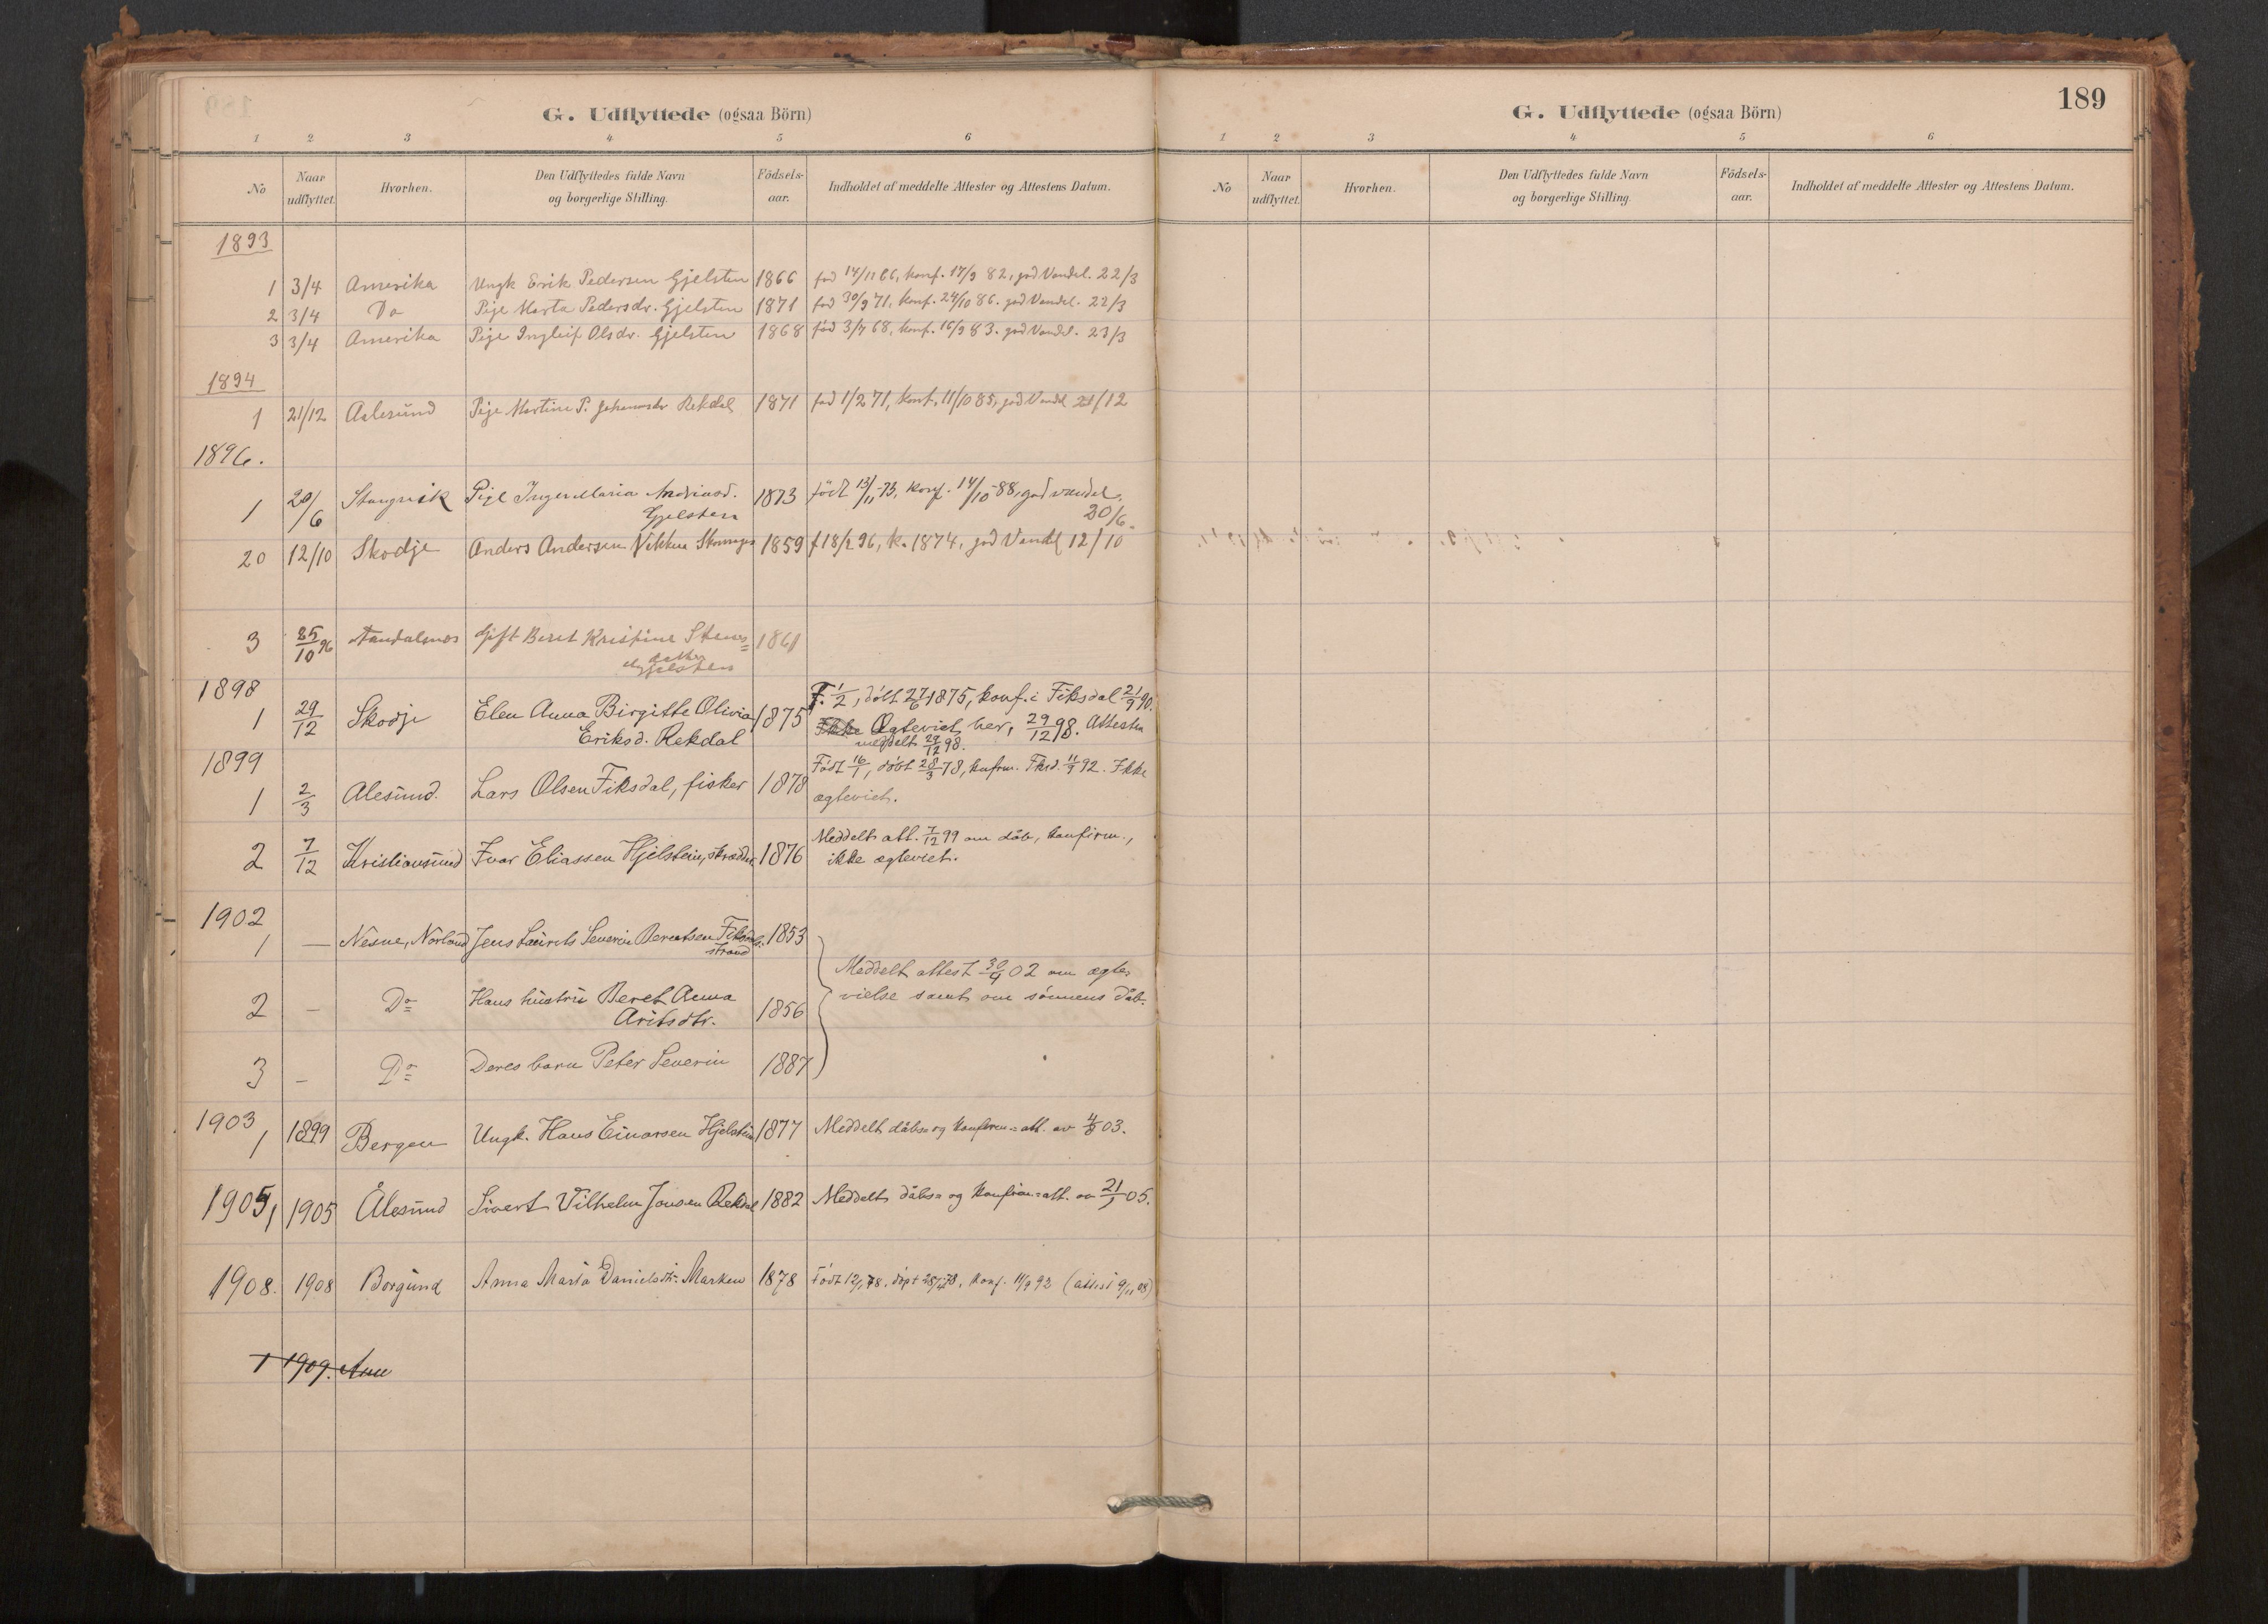 G. Udflyttede (ogsaa Börn)
1 2 3 4 5 6
No Naar udflyttet. Hvorhen. Den Udflyttedes fulde Navn og borgerlige Stilling. Födsels-aar. Indholdet af meddelte Attester og Attestens Datum.
1893
1 3/4 Amerika Ungk Erik Pedersen Gjelsten 1866 fød 14/11 66, konf. 17/9 82, god Vandel. 22/3
2 3/4 Do Pige Marta Pedersdr. Gjelsten 1871 fød 30/9 71, konf. 24/10 86. god Vandel. 22/3
3 3/4 Amerika Pige Ingleif Olsdr. Gjelsten 1868 fød 3/7 68, konf. 16/9 83. god Vandel. 23/3
1894
1 21/12 Aalesund Pige Martine P. Rekdal 1871 fød 1/2 71, konf. 11/10 85, god Vandel 21/12
1896.
1 20/6 Stangvik Pige Inger Maria Andriasd. 1873 födt 13/11-73, konf. 14/10-88, god vandel.
Gjelsten 20/6.
20 12/10 Skodje Anders Andersen 1859 f 18/2 96, k. 1874, god Vandel 12/10
3 25/10 96 Aandalsnes Gift Beret Kristine Stenes= 1861
datter
Gjelsten
1898
1 29/12 Skodje Elen Anna Birgitte Olivia 1875 F. 1/2, döbt 27/6 1875, konf. i Fiksdal 21/9 90.
Eriksd. Rekdal Ikke Ægteviet her, 29/12 98. Attesten
meddelt 29/12 98.
1899
1 2/3 Alesund. Lars Olsen Fiksdal, fisker 1878 Födt 16/1, döbt 28/3 78, konfrm. Fksd. 11/9 92. Ikke
ægteviet.
2 7/12 Kristiansund Ivar Eliassen Hjelstein, skrædder 1876 Meddelt att. 7/12 99 om dåb, konfirm.,
ikke ægteviet.
1902
1 — Nesne, Norland Jens Laurits Severin Berentsen Fiksdals. 1853
strand
Meddelt attest 30/9 02 om ægte-
2 — Do Hans hustru Beret Anna 1856 vielse samt om sönnens dåb.
Aritsdtr.
3 — Do Deres barn Peter Severin 1887
1903
1 1899 Bergen Ungk. Hans Einarsen Hjelstein 1877 Meddelt dåbs= og konfirm=att. av 4/8 03.
1905, 1905 Ålesund Sivert Vilhelm Jonsen Rekdal 1882 Meddelt dåbs= og konfirm=att. av 21/1 05.
1908. 1908 Borgund Anna Maria Danielsdtr. Marken 1878 Födt 12/1 78. döpt 28/4 78, konf. 11/9 92 (attest 9/11 08)
1 1909. Ann
G. Udflyttede (ogsaa Börn)
189
1 2 3 4 5 6
No Naar udflyttet. Hvorhen. Den Udflyttedes fulde Navn og borgerlige Stilling. Födsels-aar. Indholdet af meddelte Attester og Attestens Datum.